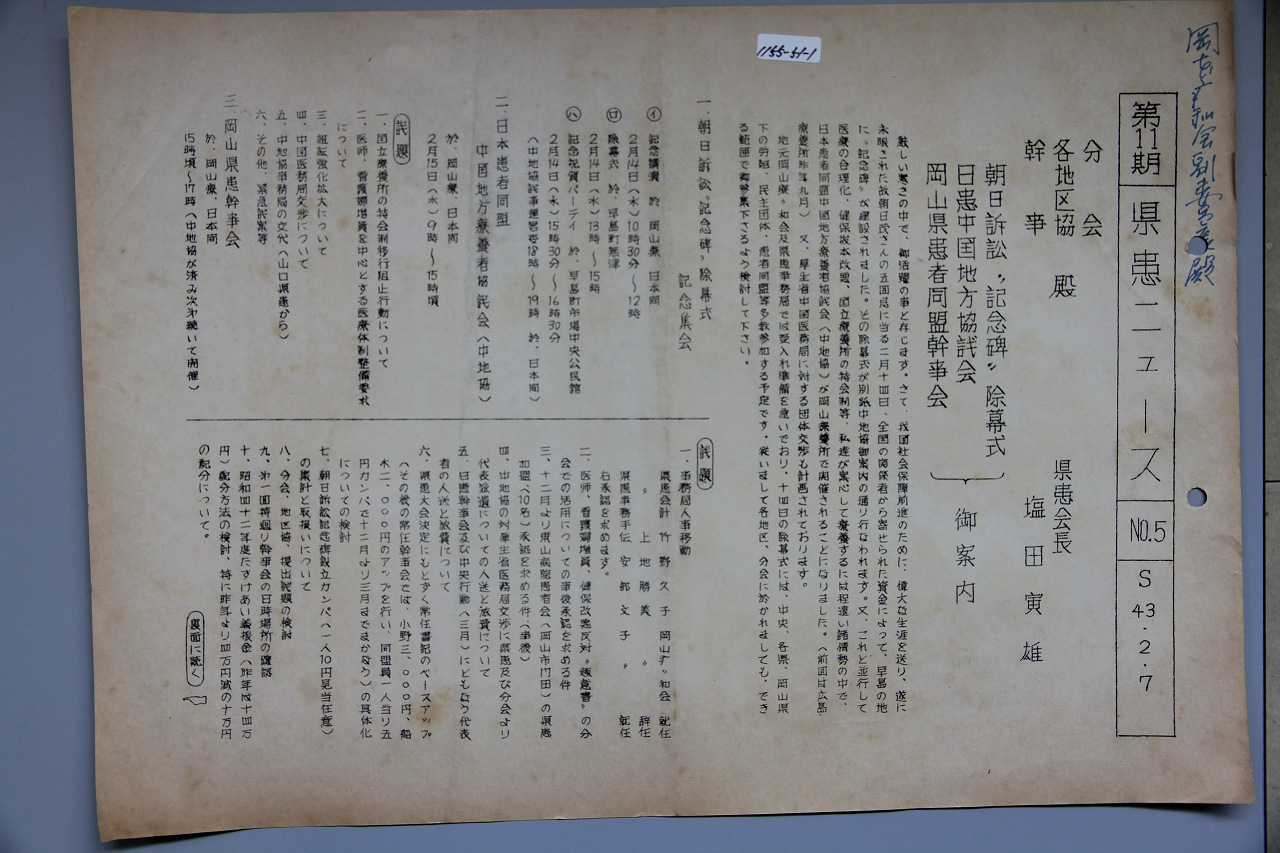 1155-51-1
第11期 県患ニュース NO.5 S43.2.7
分会
各地区協 殿
幹事
県患会長 塩田寅雄
朝日訴訟〝記念碑〟除幕式
日患中国地方協議会
岡山県患者同盟幹事会
御案内
厳しい寒さの中で、御活躍の事と存じます。さて、我国社会保障前進のために、偉大な生涯を送り、遂に
永眠された故朝日茂さんの五周忌に当る二月十四日、全国の関係者から寄せられた資金によって、早島の地
に〝記念碑〟が建設されました。その除幕式が別紙中地協御案内の通り行なわれます。又、これと並行して
医療の合理化、健保抜本改悪、国立療養所の特会制等、私達が安心して療養するには程遠い諸情勢の中で、
日本患者同盟中国地方療養者協議会(中地協)が岡山療養所で開催されることになりました。(前回は広島
療養所昨年九月) 又、厚生省中国医務局に対する団体交渉も計画されております。
地元岡山療〝和会及県患事務局では受入れ準備を急いでおり、十四日の除幕式には、中央、各県、岡山県
下の労組、民主団体、患者同盟等多数参加する予定です。従いまして各地区、分会に於かれましても、でき
る範囲で御参集下さるよう検討して下さい。
一、朝日訴訟〝記念碑〟除幕式
記念集会
㋑ 記念講演 於 岡山療 日本間
2月14日(水)10時30分〜12時
㋺ 除幕式 於、早島町無津
2月14日(水)13時〜15時
㋩ 記念祝賀パーティ 於、早島町市場中央公民館
2月14日(水)15時30分〜16時30分
(中地協議事運営委18時〜19時 於、日本間)
二、日本患者同盟
中国地方療養者協議会(中地協)
於、岡山療、日本間
2月15日(木)9時〜15時頃
議題
一、国立療養所の特会制移行阻止行動について
二、医師、看護婦増員を中心とする医療体制整備要求
について
三、組織強化拡大について
四、中国医務局交渉について
五、中地協事務局の交代(山口県患から)
六、その他、緊急議案等
三、岡山県患幹事会
於、岡山療、日本間
15時頃〜17時(中地協が済み次第続いて開催)
議題
一、事務局人事移動
県患会計 竹野久子 岡山療〝和会 就任
〃 上地勝美 〃 辞任
県患事務手伝 安部文子 〃 就任
右承認を求めます。
二、医師、看護婦増員、健保改悪反対〝趣意書〟の分
会での活用についての事後承認を求める件
三、十二月より東山病院患者会(岡山市門田)の県患
加盟(10名)承認を求める件(事後)
四、中地協の対厚生省医務局交渉に県患及び分会より
代表派遣についての人選と旅費について
五、日患幹事会及び中央行動(三月)にともなう代表
者の人選と旅費について
六、県患大会決定にもとずく常任書記のベースアップ
(その後の常任幹事会では、小野三、〇〇〇円、船
木二、〇〇〇円のアップを行い、同盟員一人当り五
円カンパで十二月より三月までまかなう)の具体化
についての検討
七、朝日訴訟記念碑設立カンパ(一人10円見当任意)
の集計と取扱いについて
八、分会、地区協、提出議題の検討
九、第一回持廻り幹事会の日時場所の確認
十、昭和四十二年度たすけあい義援金(昨年は十四万
円)配分方法の検討、特に昨年より四万円減の十万円
の配分について。
裏面に続く